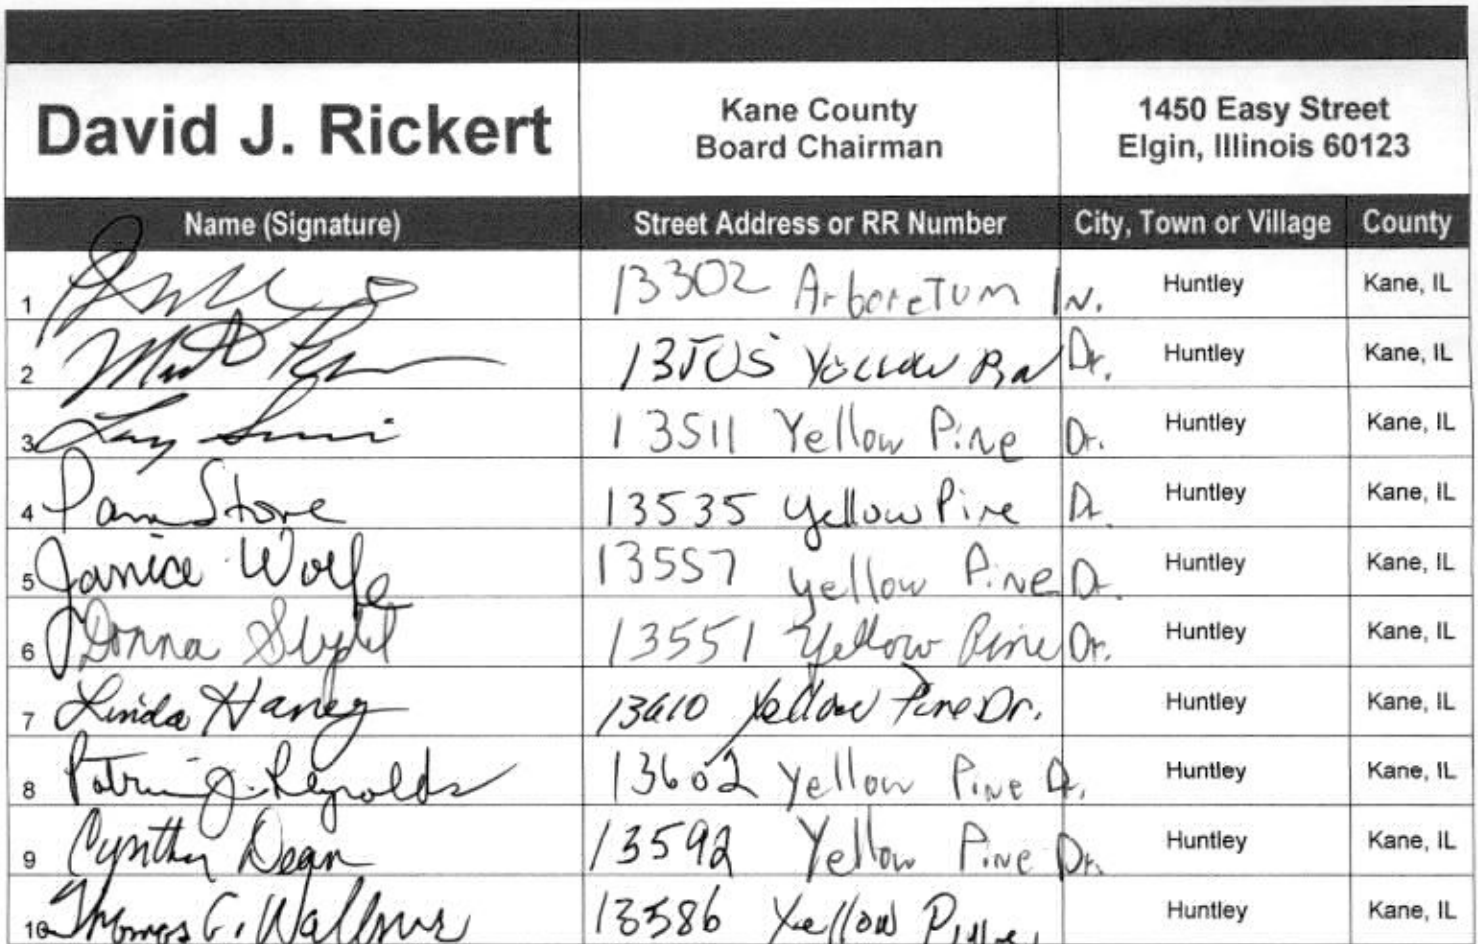 David J. Rickert
Kane County
Board Chairman
1450 Easy Street
Elgin, Illinois 60123
Name (Signature) Street Address or RR Number City, Town or Village County
1 13302 Arboretum Ln. Huntley Kane, IL
2 13505 Yellow Dr. Huntley Kane, IL
3 13511 Yellow Pine Dr. Huntley Kane, IL
4 Pam Stove 13535 Yellow Pine Dr. Huntley Kane, IL
5 Janice Wolfe 13557 Yellow Pine Dr. Huntley Kane, IL
6 Donna 13551 Yellow Pine Dr. Huntley Kane, IL
7 Linda Haney 13610 Yellow Pine Dr. Huntley Kane, IL
8 J. Reynolds 13602 Yellow Pine Dr. Huntley Kane, IL
9 Dean 13592 Yellow Pine Dr. Huntley Kane, IL
10 Thomas G. 13586 Yellow Pine Huntley Kane, IL